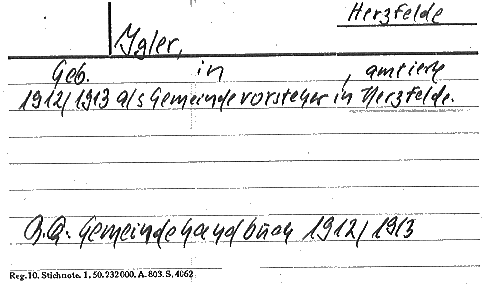 Herzfelde
Igler,
Geb. in , amtierte
1912/1913 als Gemeindevorsteher in Herzfelde.
Q.Q. Gemeindehandbuch 1912/1913
Reg. 10. Stichnote. 1, 50. 232000. A. 803. S. 4062